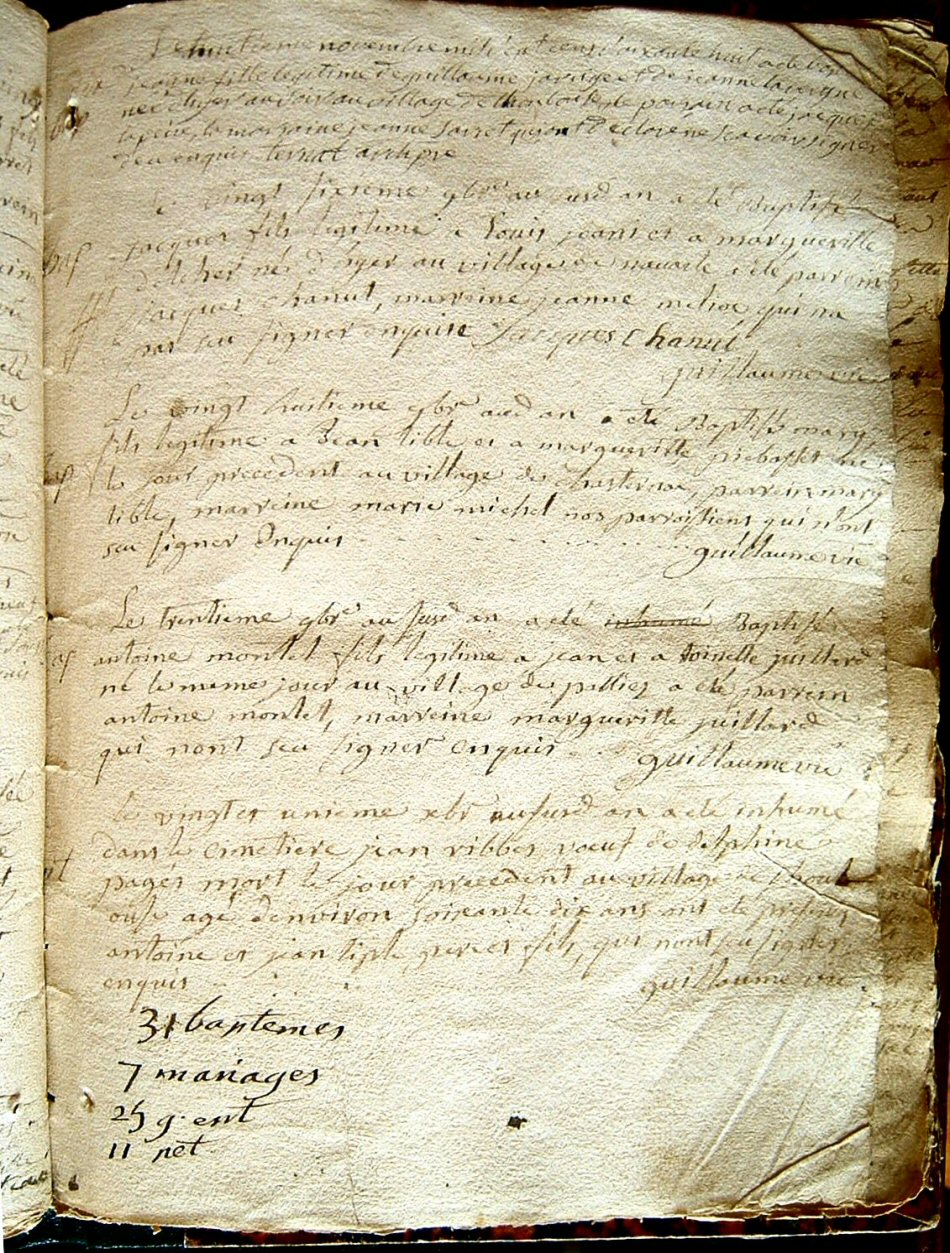 Le huitieme novembre mil sept cens soixante huit a ete
jeanne fille legitime de guillaume jarrige et de jeanne lavergne
née hyer au soir au village de parrain a été jacques
la marraine jeanne qui ont declaré ne scavoir signer
de ce enquis
Le vingt sixieme 9bre au susd an a été Baptisé
jacques fils legitime a Louis jeans et a margueritte
delcher né d'hyer au village de a été parrein
jacques chanut, marreine jeanne qui na
pas seu signer enquise Jacques Chanut
guillaume vic
Le vingt huitieme 9bre aud an a été Baptisé marq
fils legitime a Jean tible et a margueritte né
le jour precedent au village de chasternac, parrein marq
tible, marreine marie michel nos parroissiens qui n'ont
seu signer Enquis guillaume vic
Le trentieme 9bre au susd an a été inhumé Baptisé
antoine montel fils legitime a jean et a toinette juillard
né le meme jour au village de a été parrein
antoine montel, marreine margueritte juillard
qui nont seu signer enquis guillaume vic
Le vingt et unieme xbre au susd an a été inhumé
dans le cimetiere jean ribbes vœuf de delphine
pages mort le jour precedent au village de
agé d'environ soixante dix ans ont été présens
antoine et jean tiple pere et fils, qui nont seu signer
enquis guillaume vic
31 baptemes
7 mariages
25 g. ent
11 net